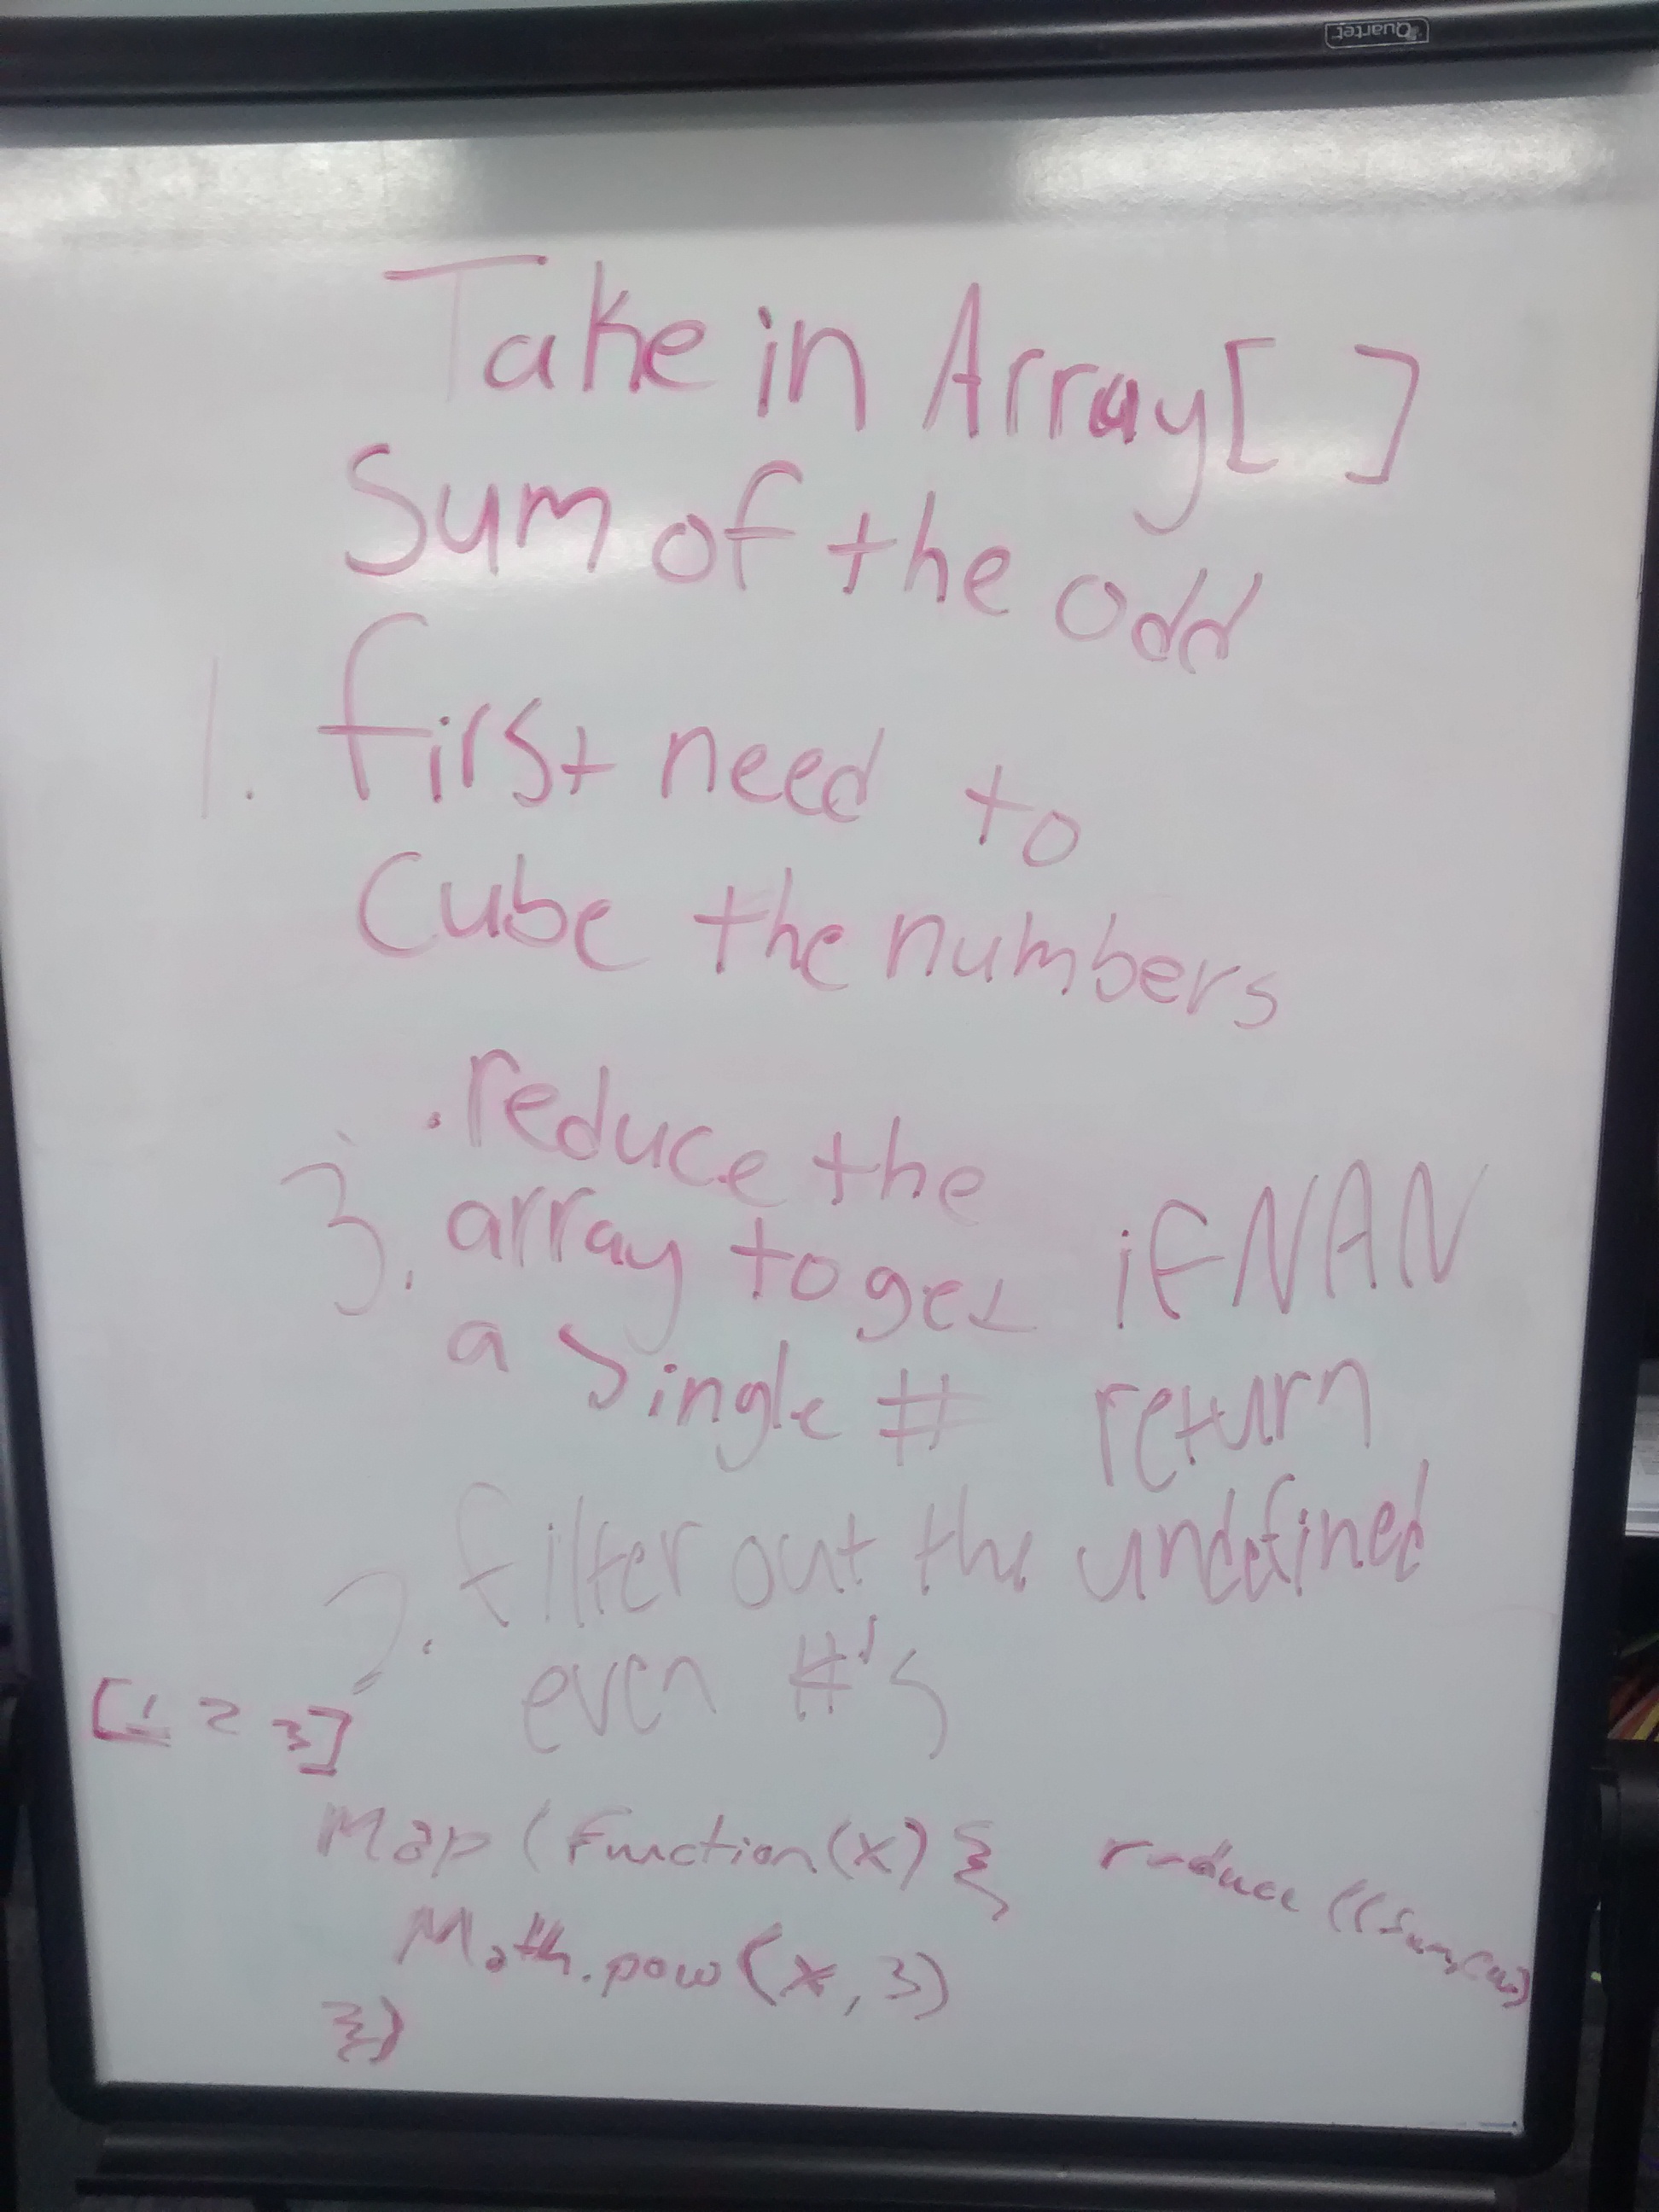 Quartet
Take in Array[ ]
Sum of the odd
1. first need to
Cube the numbers
3. .reduce the
array to get
a single #
if NAN
return
undefined
2. filter out the
even #'s
[1 2 3]
Map (function(x) {
Math.pow(x, 3)
})
reduce ((sum,